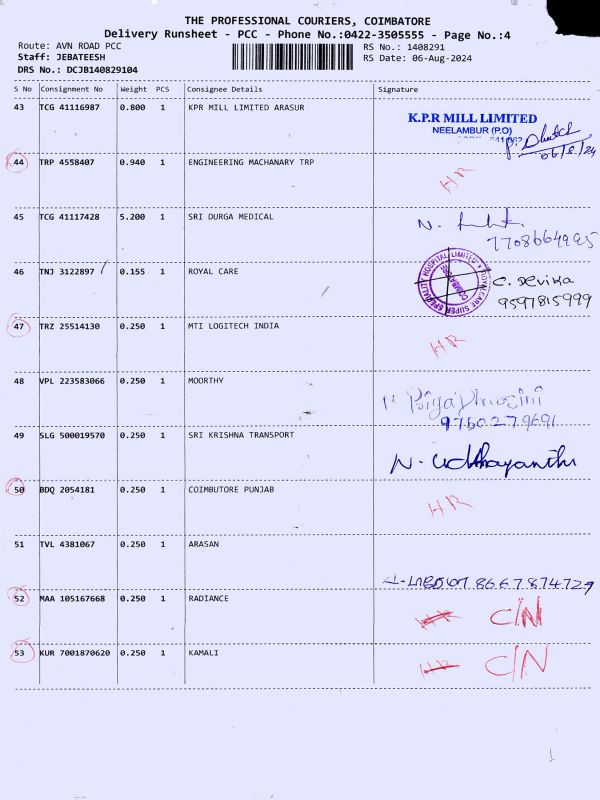 THE PROFESSIONAL COURIERS, COIMBATORE
Delivery Runsheet - PCC - Phone No.:0422-3505555 - Page No.:4
Route: AVN ROAD PCC RS No.: 1408291
Staff: JEBATEESH RS Date: 06-Aug-2024
DRS No.: DCJB140829104
S No Consignment No Weight PCS Consignee Details Signature
43 TCG 41116987 0.800 1 KPR MILL LIMITED ARASUR
K.P.R MILL LIMITED
NEELAMBUR (P.O)
06/8/24
44 TRP 4558407 0.940 1 ENGINEERING MACHANARY TRP
HR
45 TCG 41117428 5.200 1 SRI DURGA MEDICAL
N.
7708664995
46 TNJ 3122897 0.155 1 ROYAL CARE
ROYAL CARE SUPER SPECIALITY HOSPITAL LIMITED
COIMBATORE
C. Devika
9597815999
47 TRZ 25514130 0.250 1 MTI LOGITECH INDIA
HR
48 VPL 223583066 0.250 1 MOORTHY
9750279691
49 SLG 500019570 0.250 1 SRI KRISHNA TRANSPORT
N. Udhayanthi
50 BDQ 2054181 0.250 1 COIMBUTORE PUNJAB
HR
51 TVL 4381067 0.250 1 ARASAN
8667874729
52 MAA 105167668 0.250 1 RADIANCE
HR C/N
53 KUR 7001870620 0.250 1 KAMALI
HR C/N